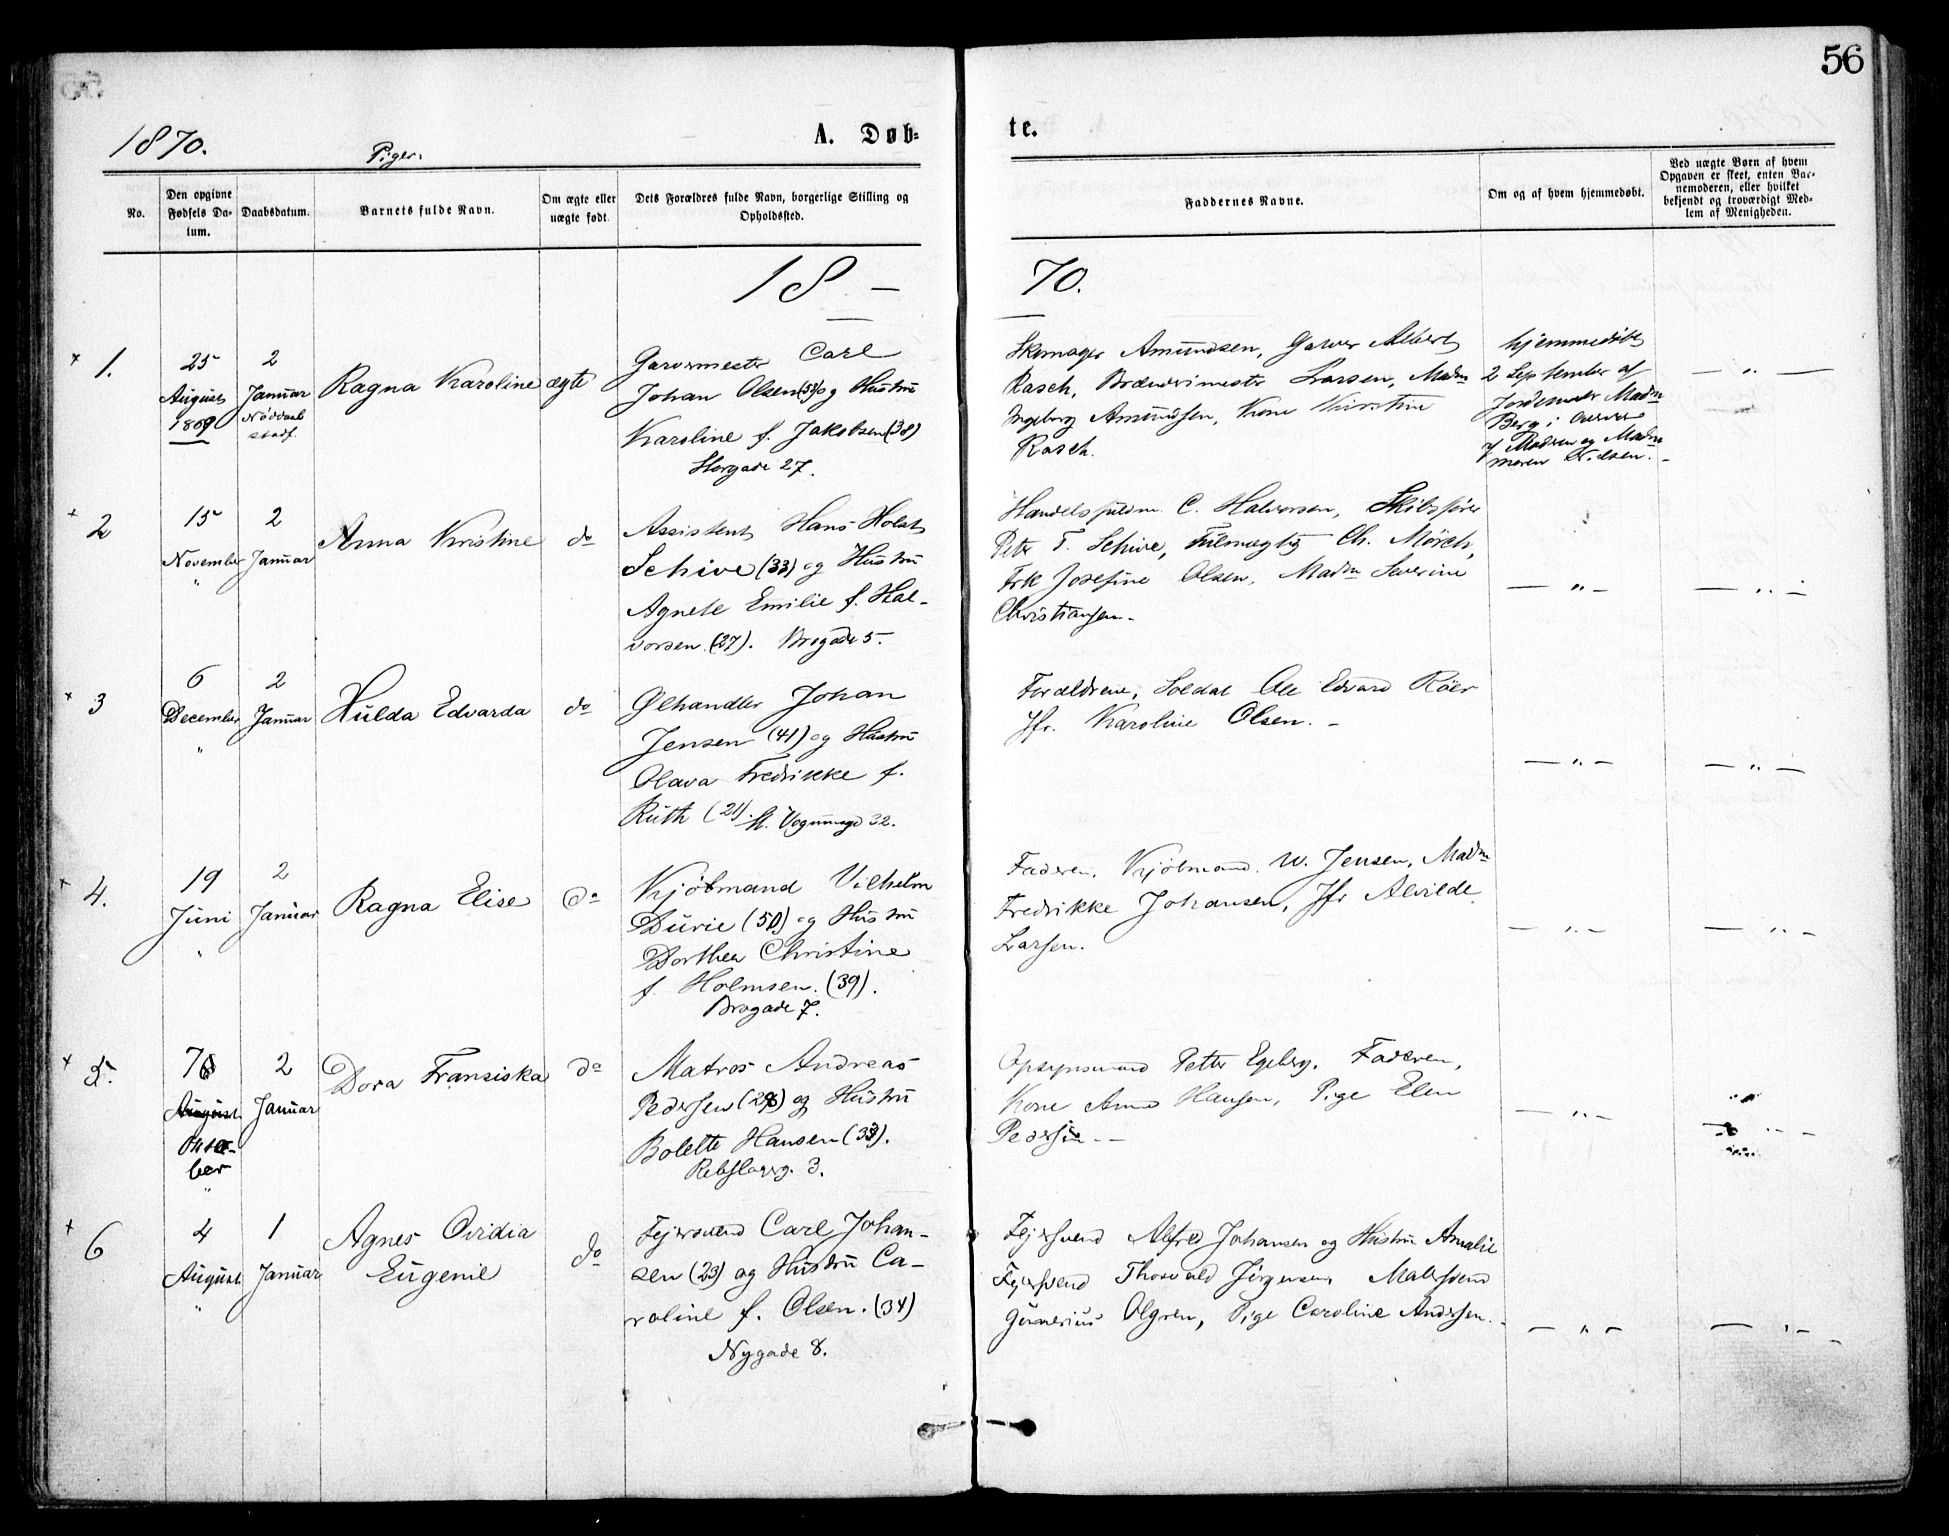 56
1870.
Piger.
A. Døb-
te.
No.
Den opgivne Fødsels Da-
tum.
Daabsdatum.
Barnets fulde Navn.
Om ægte eller
uægte født.
Dets Forældres fulde Navn, borgerlige Stilling og
Opholdssted.
Faddernes Navne.
Om og af hvem hjemmedøbt.
Ved uægte Børn af hvem
Opgaven er skeet, enten Bar-
nemoderen, eller hvilket
bekjendt og troværdigt Med-
lem af Menigheden.
18 -
70.
1.
25
August
1869
2
Januar
Nøddaab
stadf.
Ragna Karoline
ægte
Garvermester Carl
Johan Olsen (53) og Hustru
Karoline f. Jakobsen (38)
Storgade 27.
Skomager Amundsen, Garver Albert
Rasch, Brænderimester Larsen, Madm
Ingeborg Amundsen, Kone Kirstine
Rasch.
hjemmedøbt
2 September af
Jordemoder Madm
Berg i
Madm
2
15
November
"
2
Januar
Anna Kristine
do
Assistent Hans Holst
Schive (33) og Hustru
Agnete Emilie f. Hal-
vorsen (27). Brogade 5.
C. Halvorsen, Skibsfører
Peter T. Schive, Fuldmægtig Ch. Mørch,
Frk Josefine Olsen, Madm Severine
Christiansen.
— " —
— " —
3
6
December
"
2
Januar
Hulda Edvarda
do
Ølhandler Johan
Jensen (41) og Hustru
Olava Fredrikke f.
Ruth (21). 32.
Forældrene, Soldat Ole Edvard Röer
Jfr. Karoline Olsen. -
— " —
— " —
4.
19
Juni
"
2
Januar
Ragna Elise
do
Kjøbmand Vilhelm
Durie (50) og Hustru
Dorthea Christine
f. Holmsen. (39).
Brogade 7.
Faderen, Kjøbmand W. Jensen, Madm
Fredrikke Johansen, Jfr Alvilde
Larsen.
— " —
— " —
5.
7
August
Okto-
ber
"
2
Januar
Dora Fransiska
do
Matros Andreas
Pedersen (28) og Hustru
Bolette Hansen (33).
Rebslagerg. 3.
Opsynsmand Petter Egeberg, Faderen,
Kone Anne Hansen, Pige Elen
Pedersen - —
— " —
6
4
August
"
1
Januar
Agnes Ovidia
Eugenie
do
Fejersvend Carl Johan-
sen (23) og Hustru Ca-
roline f. Olsen. (34)
Nygade 8.
Fejersvend Alfred Johansen og Hustru Amalie
Fejersvend Thorvald Jörgensen, Malersvend
Gunerius Olgren, Pige Caroline Andersen.
— " —
— " —